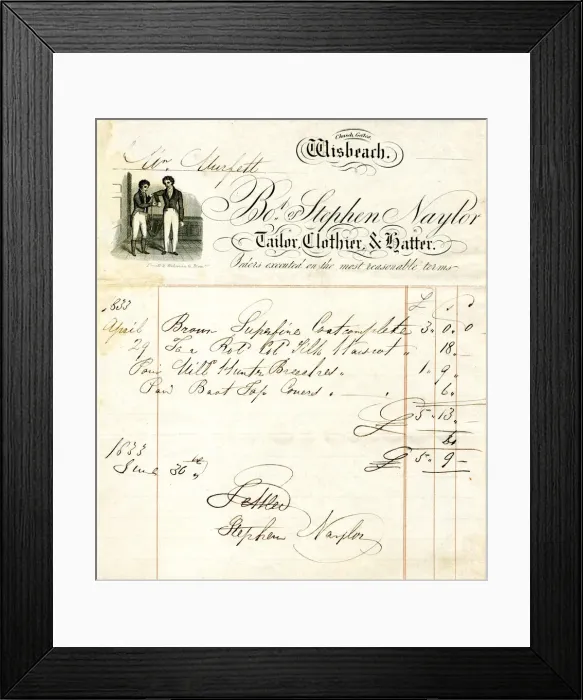 Church Gates
Wisbeach.
Mr.
Bot. of Stephen Naylor
Tailor, Clothier, & Hatter.
Orders executed on the most reasonable terms
1833 £ s D
April Brown Superfine Coat complete 3 „ 0 „ 0
29 To a Rob Col Silk Waiscot „ 18 –
Pair Mill Hunter Breeches „ 1 „ 9 „
Pair Boot Top Covers „ – „ 6 „
£ 5 „ 13 „
4
1833 £ 5 „ 9 –
June 30th
Settled
Stephen Naylor